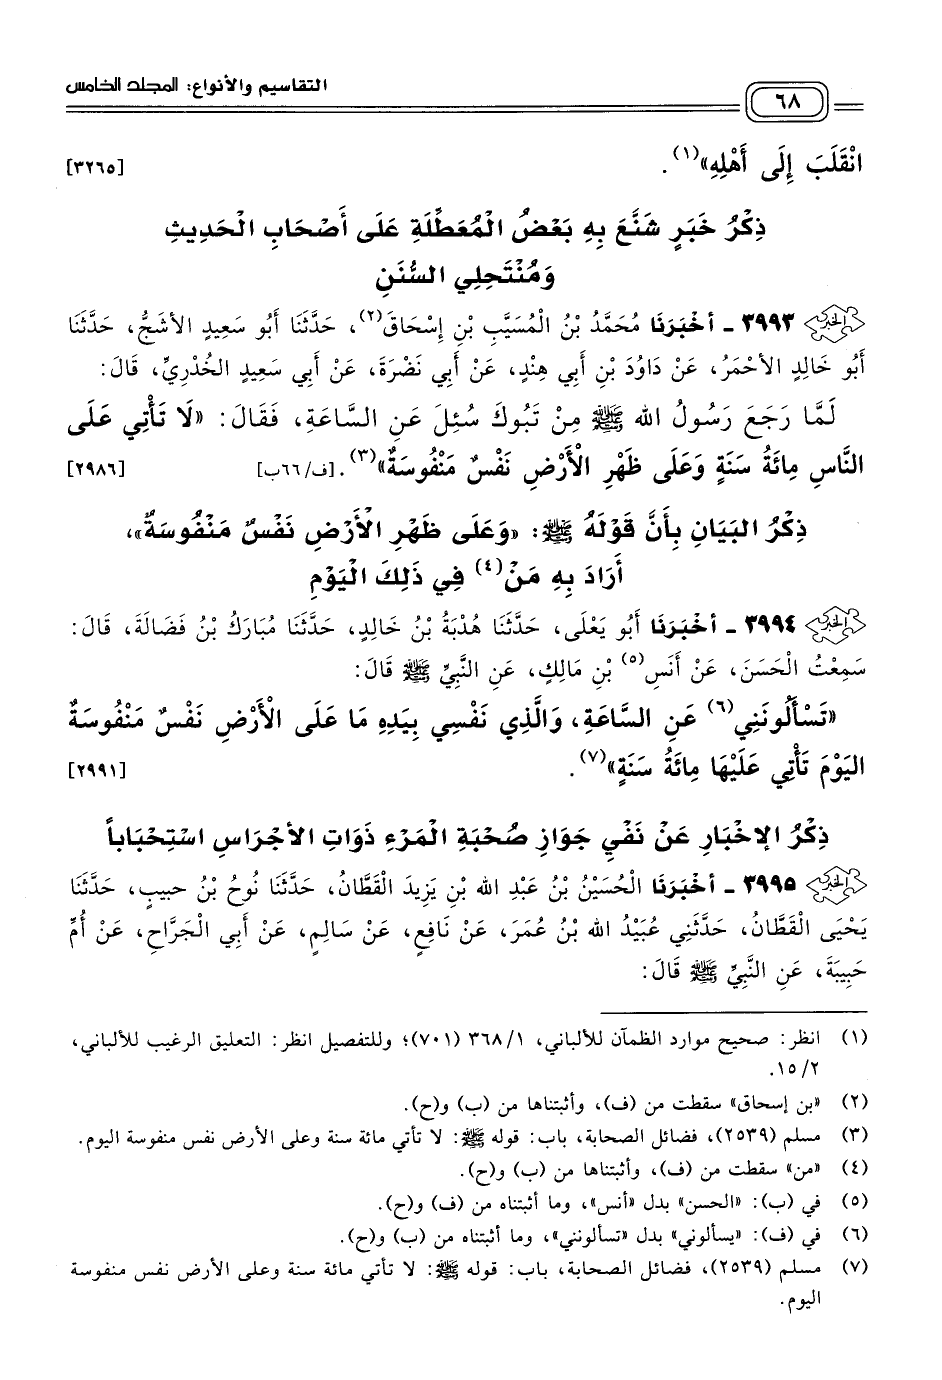 التقاسيم والأنواع: المجلد الخامس
٦٨
انْقَلَبَ إِلَى أَهْلِهِ»(١). [٣٢٦٥]
ذِكْرُ خَبَرٍ شَنَّعَ بِهِ بَعْضُ الْمُعَطِّلَةِ عَلَى أَصْحَابِ الْحَدِيثِ
وَمُنْتَحِلِي السُّنَنِ
٣٩٩٣ - أخْبَرَنَا مُحَمَّدُ بْنُ الْمُسَيَّبِ بْنِ إِسْحَاقَ(٢)، حَدَّثَنَا أَبُو سَعِيدٍ الأَشَجُّ، حَدَّثَنَا
أَبُو خَالِدٍ الأَحْمَرُ، عَنْ دَاوُدَ بْنِ أَبِي هِنْدٍ، عَنْ أَبِي نَضْرَةَ، عَنْ أَبِي سَعِيدٍ الخُدْرِيِّ، قَالَ:
لَمَّا رَجَعَ رَسُولُ الله ﷺ مِنْ تَبُوكَ سُئِلَ عَنِ السَّاعَةِ، فَقَالَ: «لَا تَأْتِي عَلَى
النَّاسِ مِائَةُ سَنَةٍ وَعَلَى ظَهْرِ الْأَرْضِ نَفْسٌ مَنْفُوسَةٌ»(٣). [ف/٦٦ب] [٢٩٨٦]
ذِكْرُ البَيَانِ بِأَنَّ قَوْلَهُ ﷺ: «وَعَلَى ظَهْرِ الْأَرْضِ نَفْسٌ مَنْفُوسَةٌ»،
أَرَادَ بِهِ مَنْ(٤) فِي ذَلِكَ الْيَوْمِ
٣٩٩٤ - أخْبَرَنَا أَبُو يَعْلَى، حَدَّثَنَا هُدْبَةُ بْنُ خَالِدٍ، حَدَّثَنَا مُبَارَكُ بْنُ فَضَالَةَ، قَالَ:
سَمِعْتُ الْحَسَنَ، عَنْ أَنَسِ(٥) بْنِ مَالِكٍ، عَنِ النَّبِيِّ ﷺ قَالَ:
«تَسْأَلُونَنِي(٦) عَنِ السَّاعَةِ، وَالَّذِي نَفْسِي بِيَدِهِ مَا عَلَى الْأَرْضِ نَفْسٌ مَنْفُوسَةٌ
اليَوْمَ تَأْتِي عَلَيْهَا مِائَةُ سَنَةٍ»(٧). [٢٩٩١]
ذِكْرُ الإخْبَارِ عَنْ نَفْيِ جَوَازِ صُحْبَةِ الْمَرْءِ ذَوَاتِ الأجْرَاسِ اسْتِحْبَاباً
٣٩٩٥ - أخْبَرَنَا الْحُسَيْنُ بْنُ عَبْدِ الله بْنِ يَزِيدَ الْقَطَّانُ، حَدَّثَنَا نُوحُ بْنُ حبيبٍ، حَدَّثَنَا
يَحْيَى الْقَطَّانُ، حَدَّثَنِي عُبَيْدُ الله بْنُ عُمَرَ، عَنْ نَافِعٍ، عَنْ سَالِمٍ، عَنْ أَبِي الْجَرَّاحِ، عَنْ أُمِّ
حَبِيبَةَ، عَنِ النَّبِيِّ ﷺ قَالَ:
(١) انظر: صحيح موارد الظمآن للألباني، ٣٦٨/١ (٧٠١)؛ وللتفصيل انظر: التعليق الرغيب للألباني،
١٥/٢.
(٢) «بن إسحاق» سقطت من (ف)، وأثبتناها من (ب) و(ح).
(٣) مسلم (٢٥٣٩)، فضائل الصحابة، باب: قوله ﷺ: لا تأتي مائة سنة وعلى الأرض نفس منفوسة اليوم.
(٤) «من» سقطت من (ف)، وأثبتناها من (ب) و(ح).
(٥) في (ب): «الحسن» بدل «أنس»، وما أثبتناه من (ف) و(ح).
(٦) في (ف): «يسألوني» بدل «تسألونني»، وما أثبتناه من (ب) و(ح).
(٧) مسلم (٢٥٣٩)، فضائل الصحابة، باب: قوله ﷺ: لا تأتي مائة سنة وعلى الأرض نفس منفوسة
اليوم.